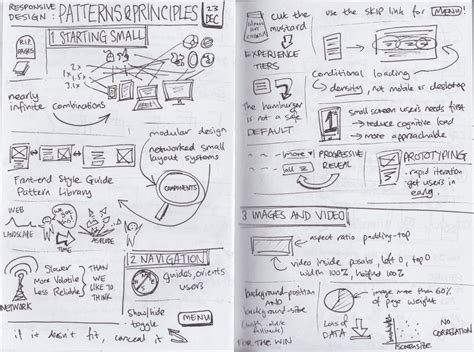 RESPONSIVE
DESIGN :
PATTERNS & PRINCIPLES
23
DEC
R.I.P.
PAGES
1 STARTING SMALL
2x
1.5x
1x
3x
nearly
infinite combinations
modular design
networked small
layout systems
Front-end Style Guide
Pattern Library
COMPONENTS
WEB
LANDSCAPE
TIME
ASPLODE
NETWORK
Slower
More Volatile
Less Reliable
THAN
WE
LIKE TO
THINK
2 NAVIGATION
guides, orients
users
show/hide
toggle
MENU
if it doesn't fit, conceal it
cut the
mustard
EXPERIENCE
TIERS
use the SKIP link for MENU!
conditional loading
density, not mobile or desktop
The hamburger
is not a safe
DEFAULT
small screen users needs first
→ reduce cognitive load
→ more approachable
more
all
PROGRESSIVE
REVEAL
PROTOTYPING
rapid iteration
get users in
early.
3 IMAGES AND VIDEO
aspect ratio padding-top
video inside posabs, left 0, top 0
width 100%, height 100%
background-position
AND
background-size
FOR THE WIN
image more than 60%
of page weight
LOSS OF
DATA
SCREENSIZE
NO
CORRELATION